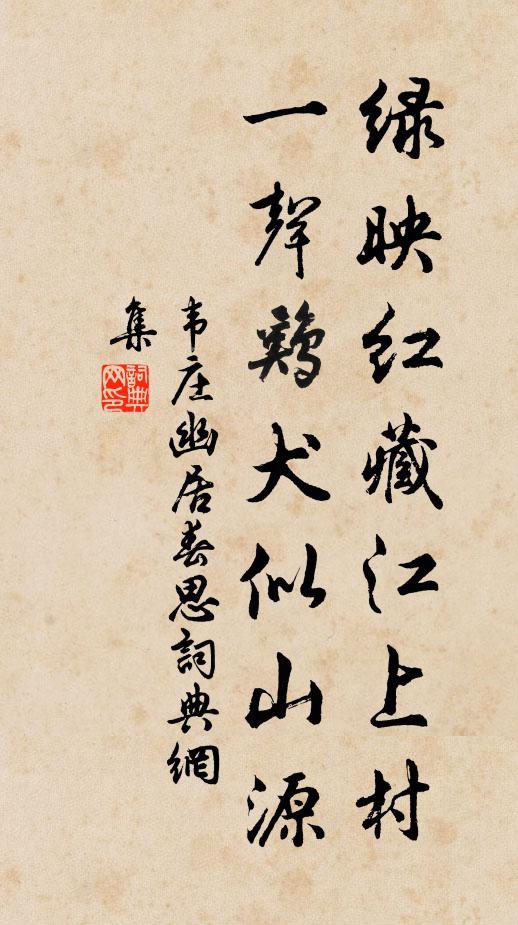 绿映红藏江上村
一聲鷄犬似山源
韦庄幽居春思詞典網
集
詞典
网印